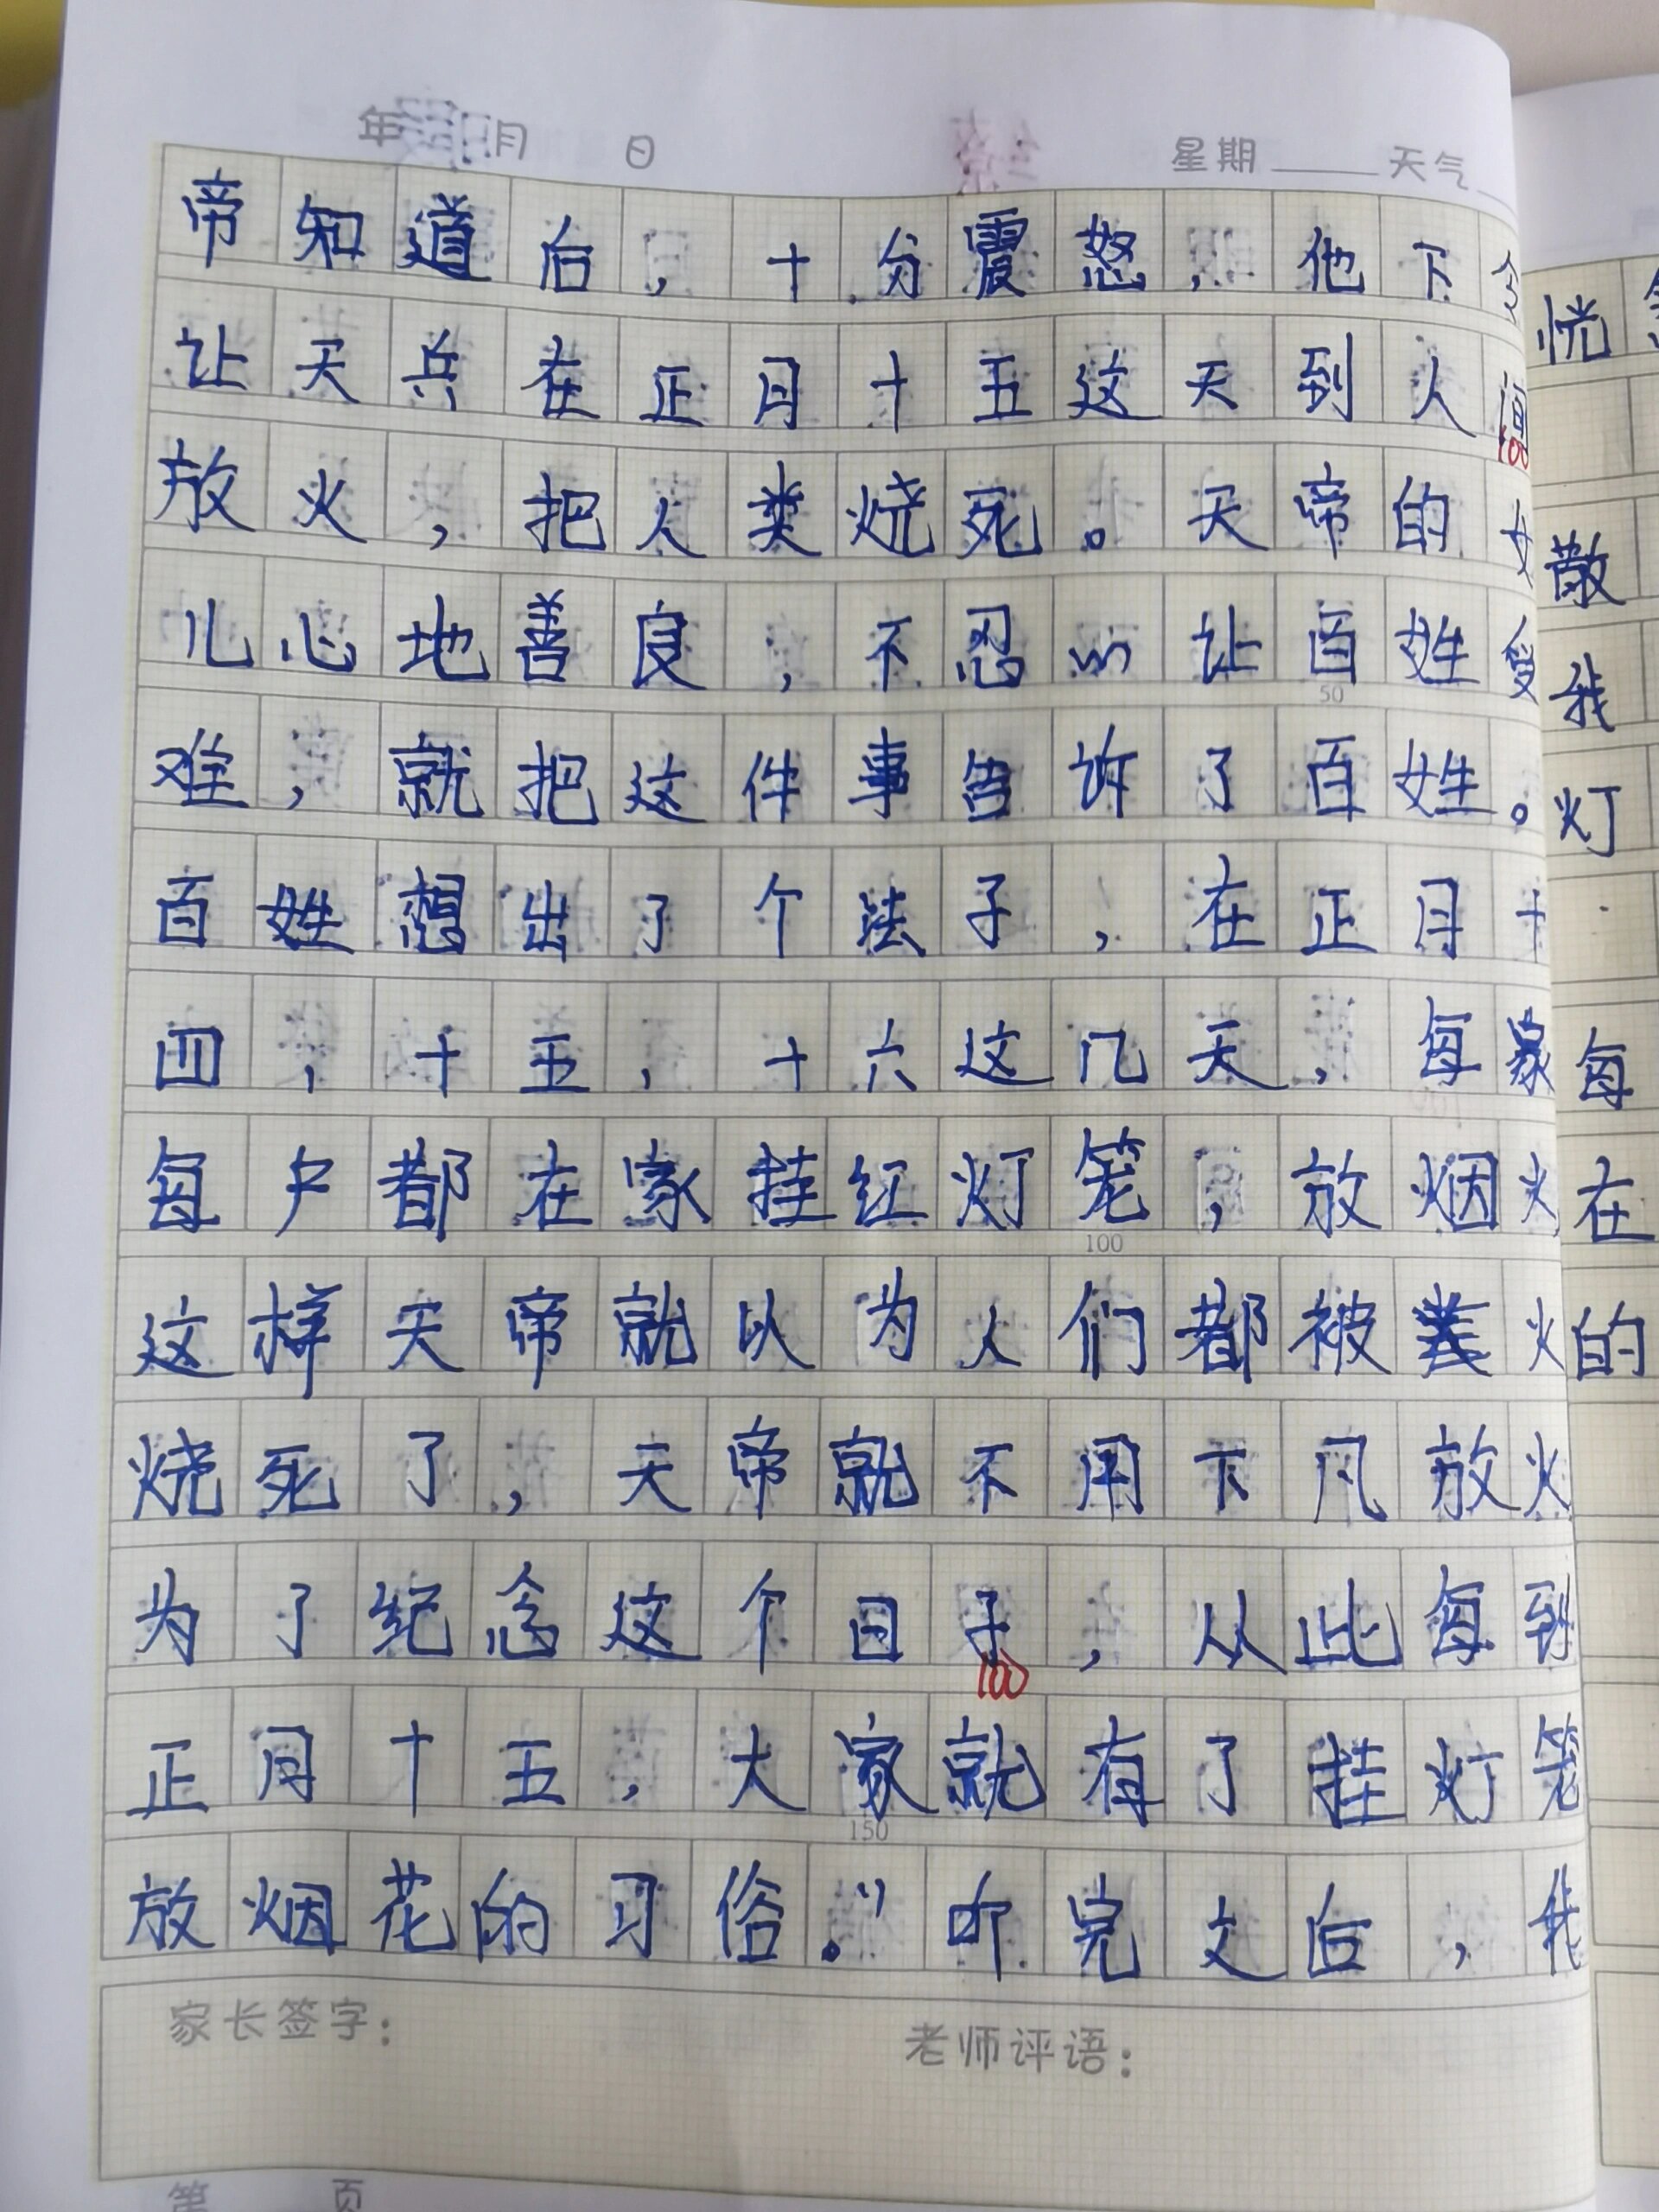 年 月 日 星期 天气
帝知道后，十分震怒，他下令
让天兵在正月十五这天到人间
100
放火，把人类烧死。天帝的女
儿心地善良，不忍心让百姓受
50
难，就把这件事告诉了百姓。
百姓想出了个法子，在正月十
四，十五，十六这几天，每家
每户都在家挂红灯笼，放烟火
100
这样天帝就以为人们都被
火
烧死了，天帝就不用下凡放火
为了纪念这个日子，从此每到
100
正月十五，大家就有了挂灯笼
150
放烟花的习俗。”听完之后，我
家长签字：
老师评语：
第 页
恍
散
我
灯
每
在
的